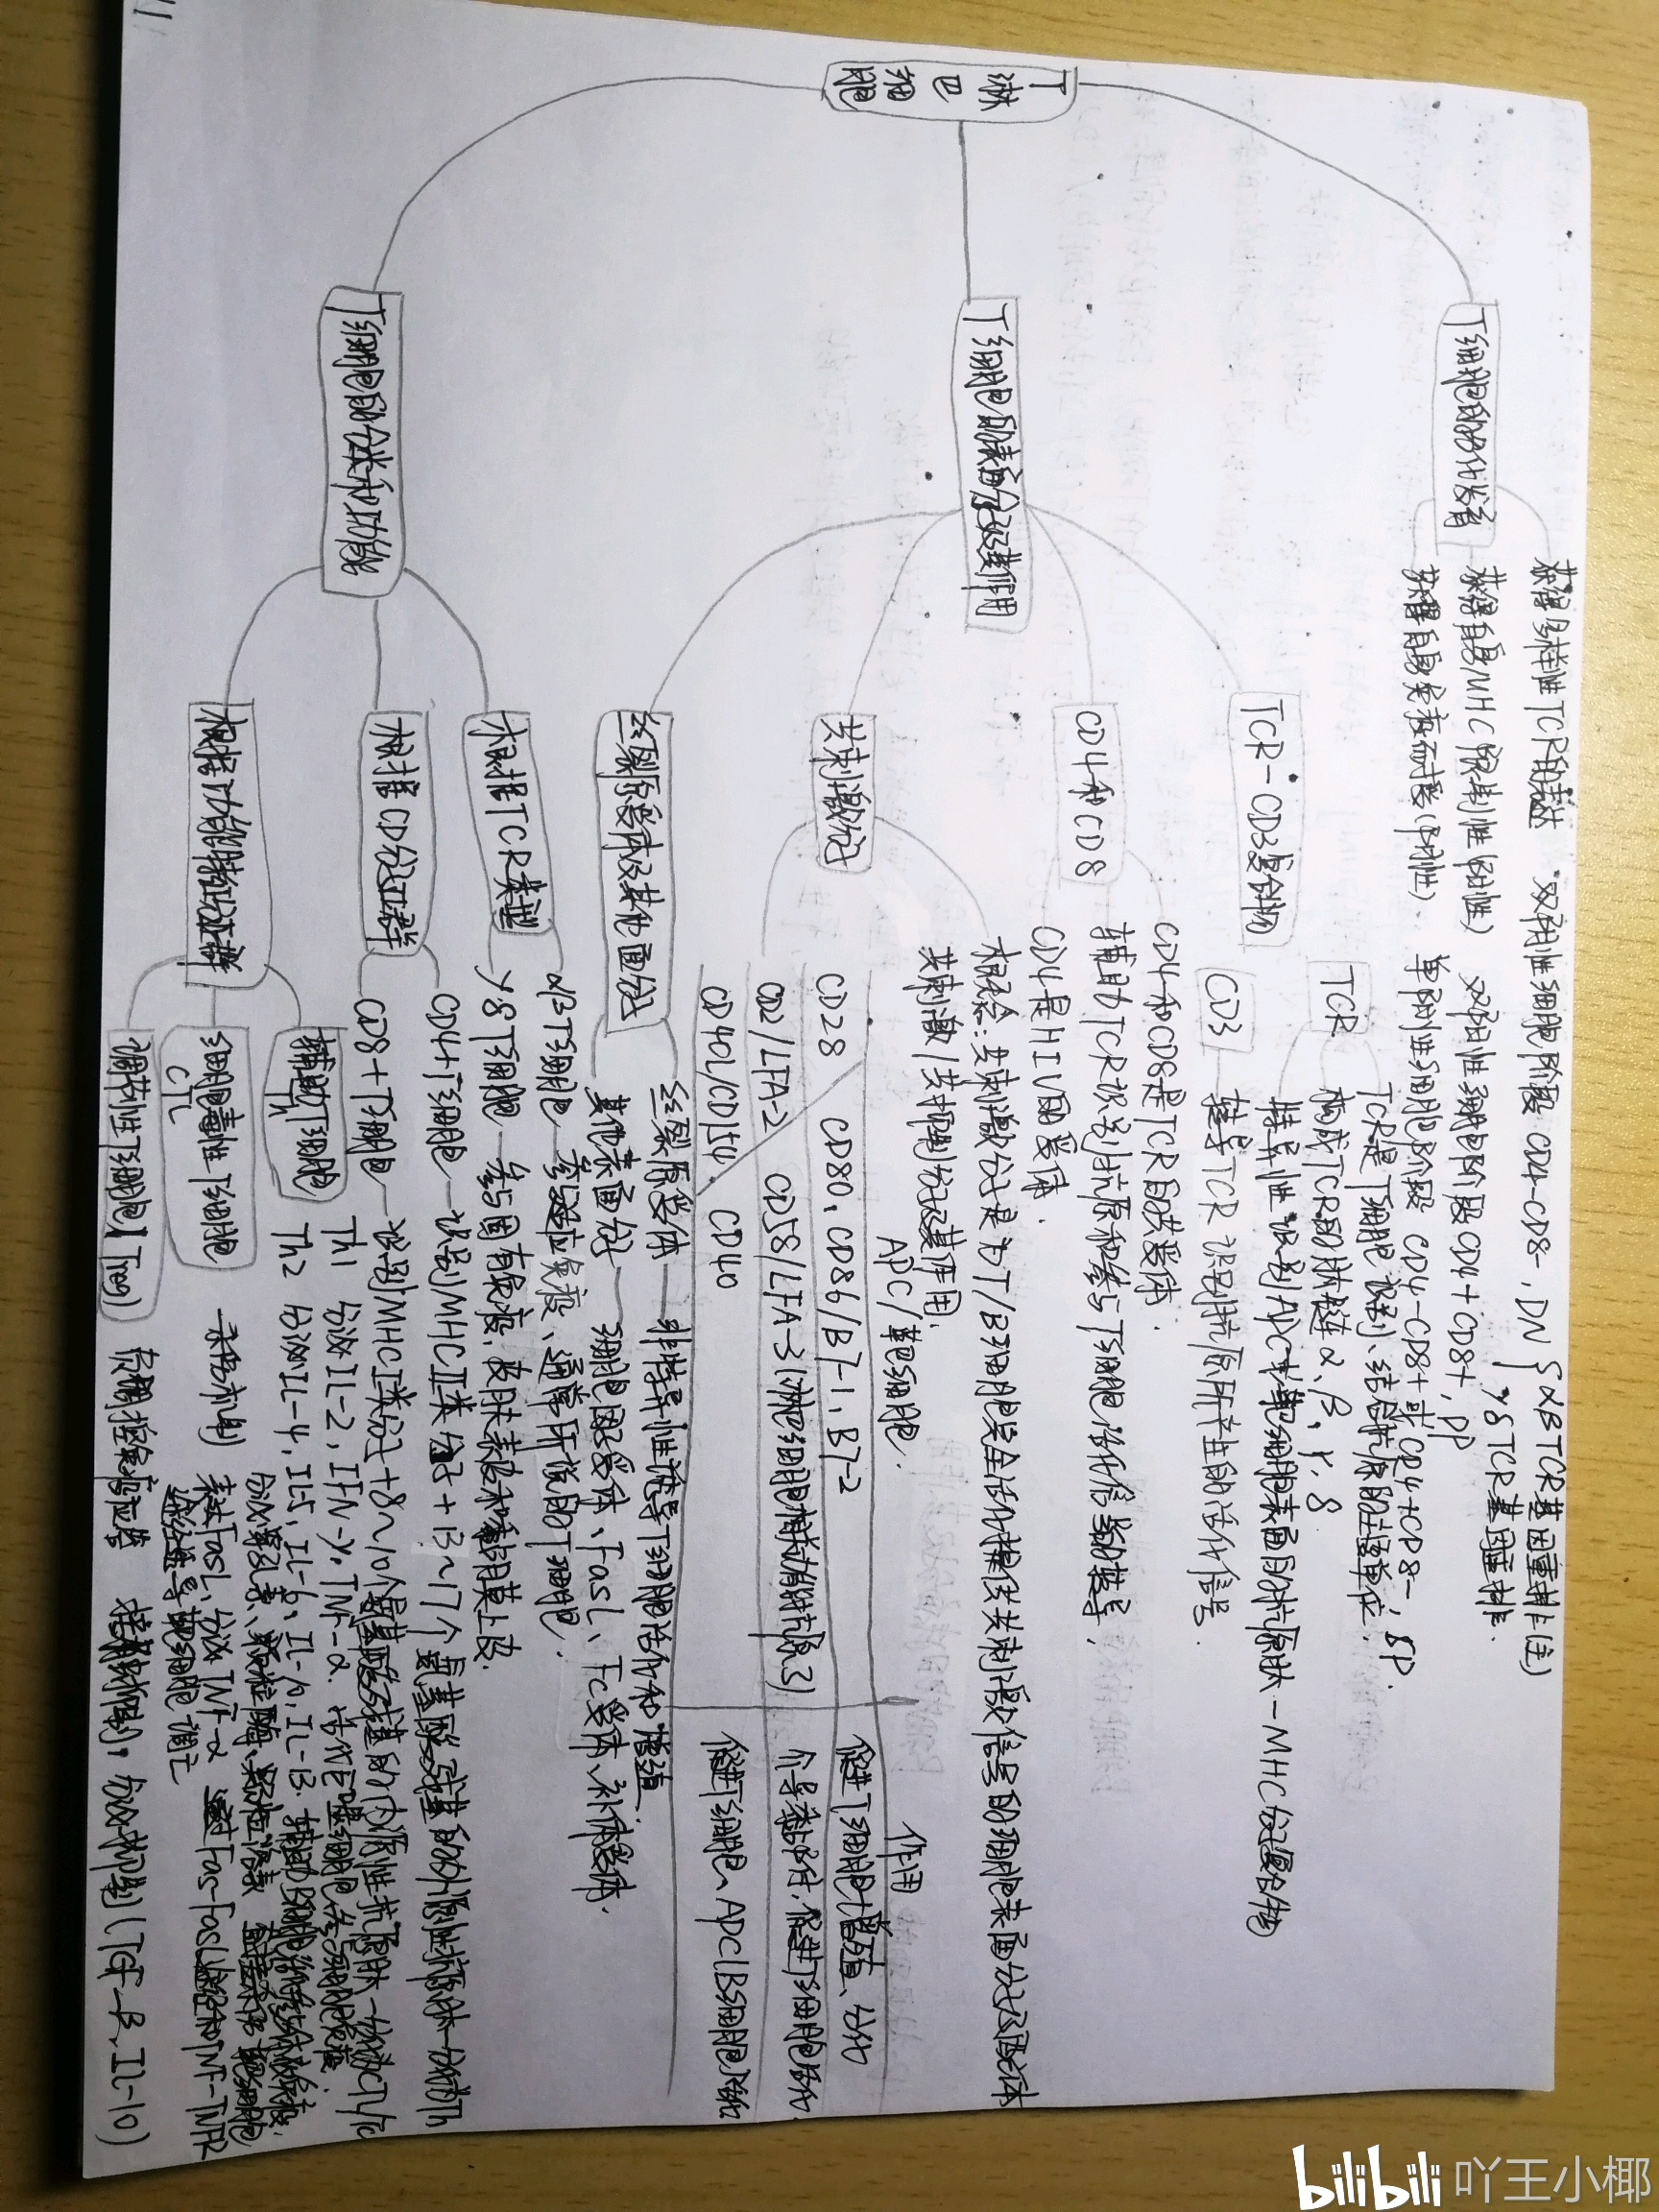 T淋巴细胞
T细胞的分化发育
获得多样性TCR的表达 双阴性细胞阶段 CD4-CD8-,DN αβTCR基因重排(主)
γδTCR基因重排.
获得自身MHC限制性(阳性) 双阳性细胞阶段CD4+CD8+,DP
获得自身免疫耐受(阴性). 单阳性细胞阶段 CD4-CD8+或CD4+CD8-,SP.
T细胞的表面分子及其作用
TCR-CD3复合物
TCR
TCR是T细胞识别、结合抗原的特异单位.
构成TCR的肽链α、β、γ、δ
特异性识别APC或靶细胞表面的抗原肽-MHC分子复合物
CD3
转导TCR识别抗原所产生的活化信号.
CD4和CD8
CD4和CD8是TCR的共受体.
辅助TCR识别抗原和参与T细胞活化信号的转导,
CD4是HIV的受体.
共刺激分子
概念:共刺激分子是为T/B细胞完全活化提供共刺激信号的细胞表面分子及配体
共刺激/共抑制分子及其作用.
APC/靶细胞. 作用
CD28 CD80、CD86/B7-1,B7-2 促进T细胞增殖、分化
CD2/LFA-2 CD58/LFA-3(淋巴细胞功能相关抗原3) 介导黏附, 促进T细胞活化
CD40L/CD154. CD40 促进T细胞、APC、B细胞活化
丝裂原受体及其他表面分子
丝裂原受体 — 非特异性诱导T细胞活化和增殖.
其他表面分子 — 细胞因子受体、FasL、Fc受体、补体受体.
T细胞的分类和功能
根据TCR类型
αβT细胞 — 参与适应免疫、通常所说的T细胞.
γδT细胞 — 参与固有免疫,皮肤表皮和黏膜上皮.
根据CD分子亚群
CD4+T细胞 — 识别MHCⅡ类分子+13~17个氨基酸残基的外源性抗原肽 — 分化为Th
CD8+T细胞 — 识别MHCⅠ类分子+8~10个氨基酸残基的内源性抗原肽 — 分化为CTL/Tc
根据功能特征亚群
辅助T细胞
Th
Th1 分泌IL-2,IFN-γ,TNF-α.
Th2 分泌IL-4,IL-5,IL-6,IL-10,IL-13.
细胞毒性T细胞
CTL
表达FasL、分泌TNF-α 通过Fas-FasL途径和TNF-TNFR
途径诱导靶细胞凋亡
调节性T细胞(Treg)
负调控免疫应答 接触抑制, 分泌抑制(TGF-β、IL-10)
bilibili 吖王小椰